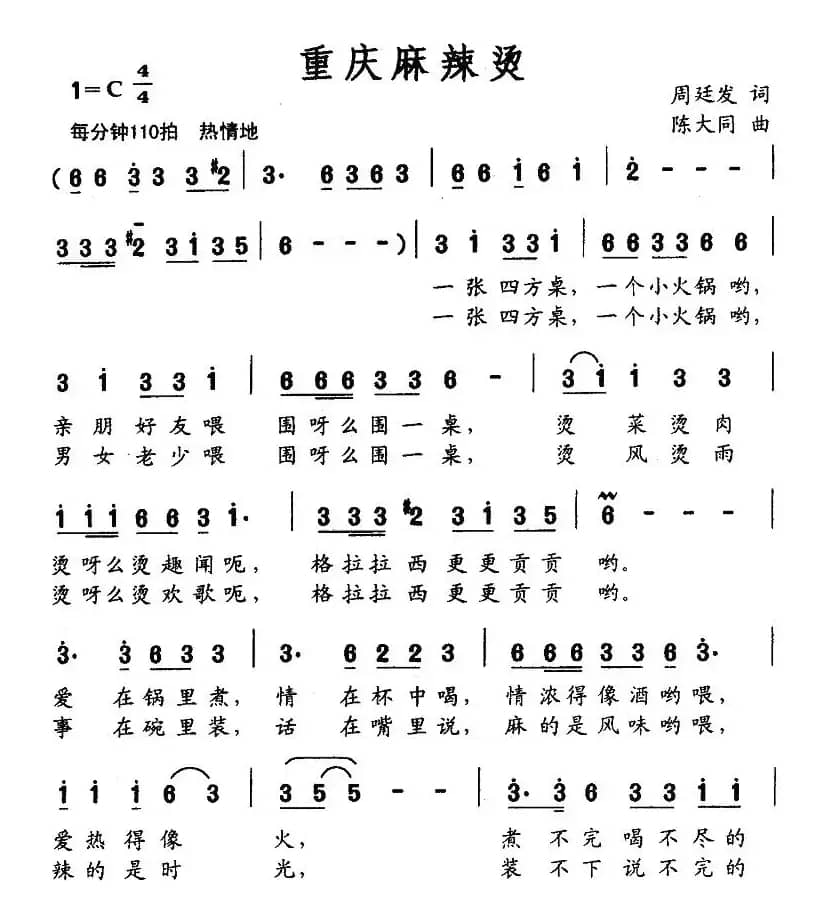 重庆麻辣烫
1=C 4/4
周廷发 词
每分钟110拍 热情地
陈大同 曲
(6 6 3̇ 3 3 3 #2 | 3· 6 3 6 3 | 6 6 i 6 i | 2̇ - - - |
3 3 3 #2 3 i 3 5 | 6 - - - ) | 3 i 3 3 i | 6 6 3 3 6 6 |
一张四方桌，一个小火锅哟，
一张四方桌，一个小火锅哟，
3 i 3 3 i | 6 6 6 3 3 6 - | 3 i i 3 3 |
亲朋好友喂 围呀么围一桌， 烫 菜烫肉
男女老少喂 围呀么围一桌， 烫 风烫雨
i i i 6 6 3 i· | 3 3 3 #2 3 i 3 5 | 6 - - - |
烫呀么烫趣闻呃， 格拉拉西更更贡贡 哟。
烫呀么烫欢歌呃， 格拉拉西更更贡贡 哟。
3̇· 3̇ 6 3 3 | 3· 6 2 2 3 | 6 6 6 3 3 6 3̇· |
爱 在锅里煮， 情 在杯中喝， 情浓得像酒哟喂，
事 在碗里装， 话 在嘴里说， 麻的是风味哟喂，
i i i 6 3 | 3 5 5 - - | 3̇· 3̇ 6 3 3 i i |
爱热得像 火， 煮 不完喝不尽的
辣的是时 光， 装 不下说不完的